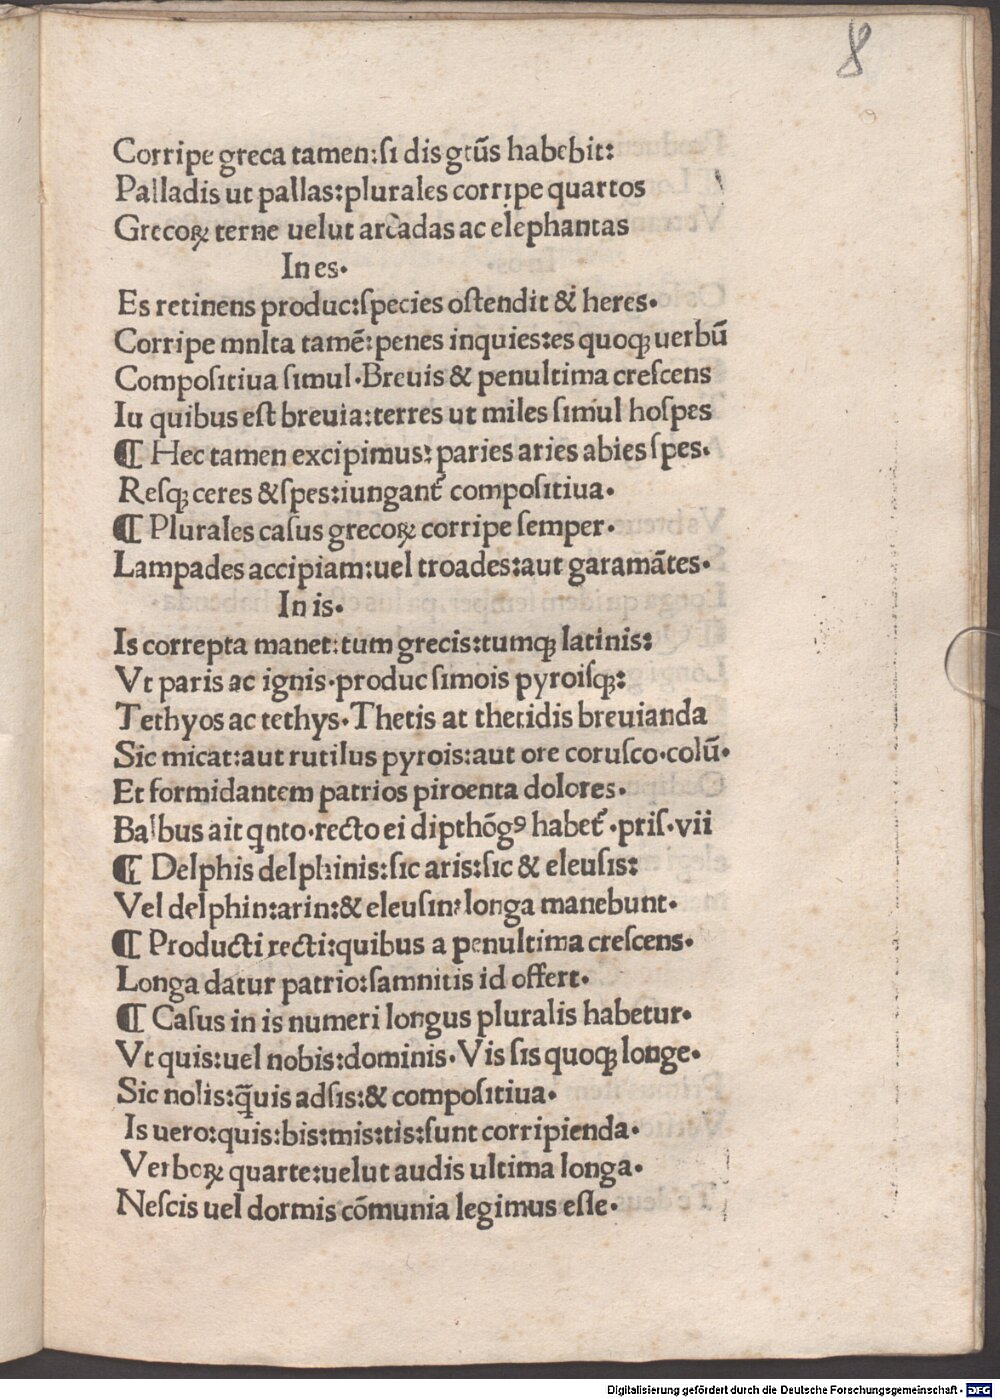 8
Corripe greca tamen:si dis gtūs habebit:
Palladis ut pallas:plurales corripe quartos
Grecoꝝ terne uelut arcadas ac elephantas
In es.
Es retinens produc:species ostendit & heres.
Corripe mnlta tamē:penes inquies:es quoqꝫ uerbū
Compositiua simul.Breuis & penultima crescens
Iu quibus est breuia:terres ut miles simul hospes
¶ Hec tamen excipimus:paries aries abies spes.
Resqꝫ ceres &spes:iungant᷑ compositiua.
¶ Plurales casus grecoꝝ corripe semper.
Lampades accipiam:uel troades:aut garamātes.
In is.
Is correpta manet:tum grecis:tumqꝫ latinis:
Vt paris ac ignis.produc simois pyroisqꝫ:
Tethyos ac tethys.Thetis at thetidis breuianda
Sic micat:aut rutilus pyrois:aut ore corusco.colū.
Et formidantem patrios piroenta dolores.
Balbus ait qnto.recto ei dipthōgꝰ habet᷑.pris.vii
¶ Delphis delphinis:sic aris:sic & eleusis:
Vel delphin:arin:& eleusin:longa manebunt.
¶ Producti recti:quibus a penultima crescens.
Longa datur patrio:samnitis id offert.
¶ Casus in is numeri longus pluralis habetur.
Vt quis:uel nobis:dominis.Vis sis quoqꝫ longe.
Sic nolis:q̄uis adsis:& compositiua.
Is uero:quis:bis:mis:tis:sunt corripienda.
Verboꝝ quarte:uelut audis ultima longa.
Nescis uel dormis cōmunia legimus esse.
Digitalisierung gefördert durch die Deutsche Forschungsgemeinschaft - DFG